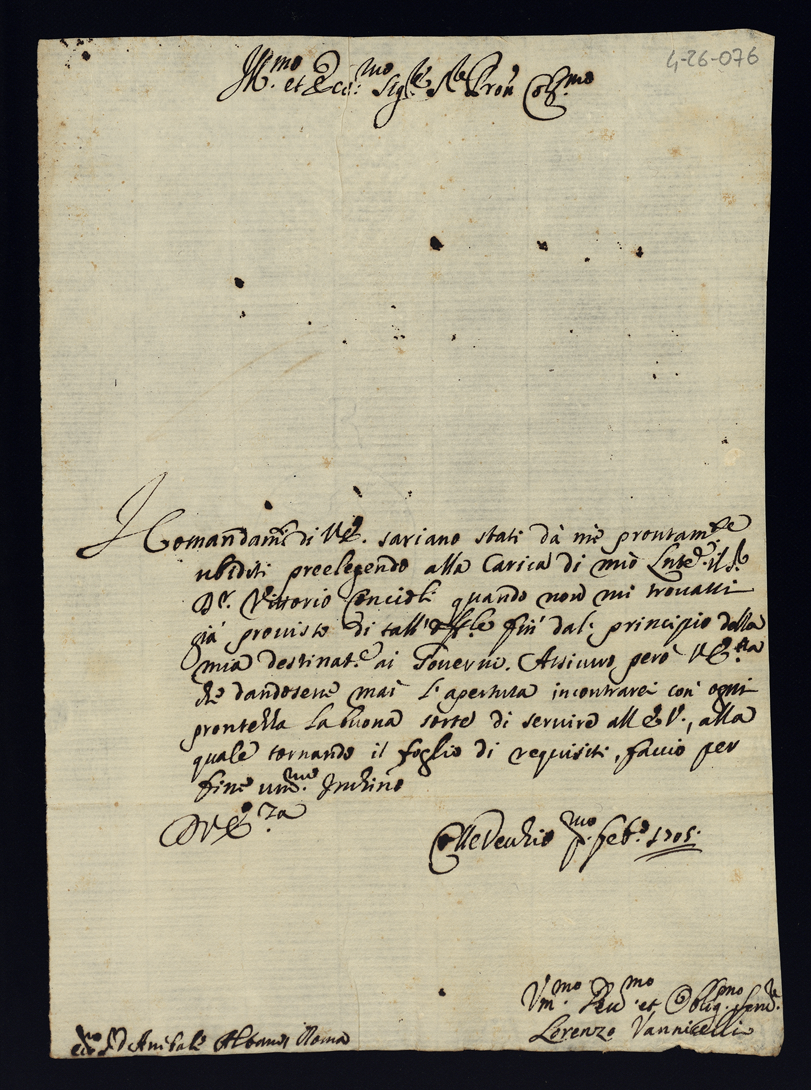 4-26-076
Ill.mo et Ecc.mo Sig.re S.re Pron Col.mo
I Comandam.ti di V.E. sariano stati dà me prontam.te
ubiditi preelegendo alla Carica di mio Lnte. il S.r
D.r Vittorio Concioli quando non mi trovassi
già provisto di tall'Off.le fin' dal principio della
mia destinat.e ai Governi. Assicuro però V.E.za
che dandosene mai l'apertura incontrarei con ogni
prontezza la buona sorte di servire all E.V., alla
quale tornando il foglio di requisiti, faccio per
fine um.me Inchino
D V.E.za
Collevechio p.mo Feb.o 1705.
Um.mo Deu.mo et Oblig.mo Seru.re
Lorenzo Vannicelli
D Anibale Albani Roma